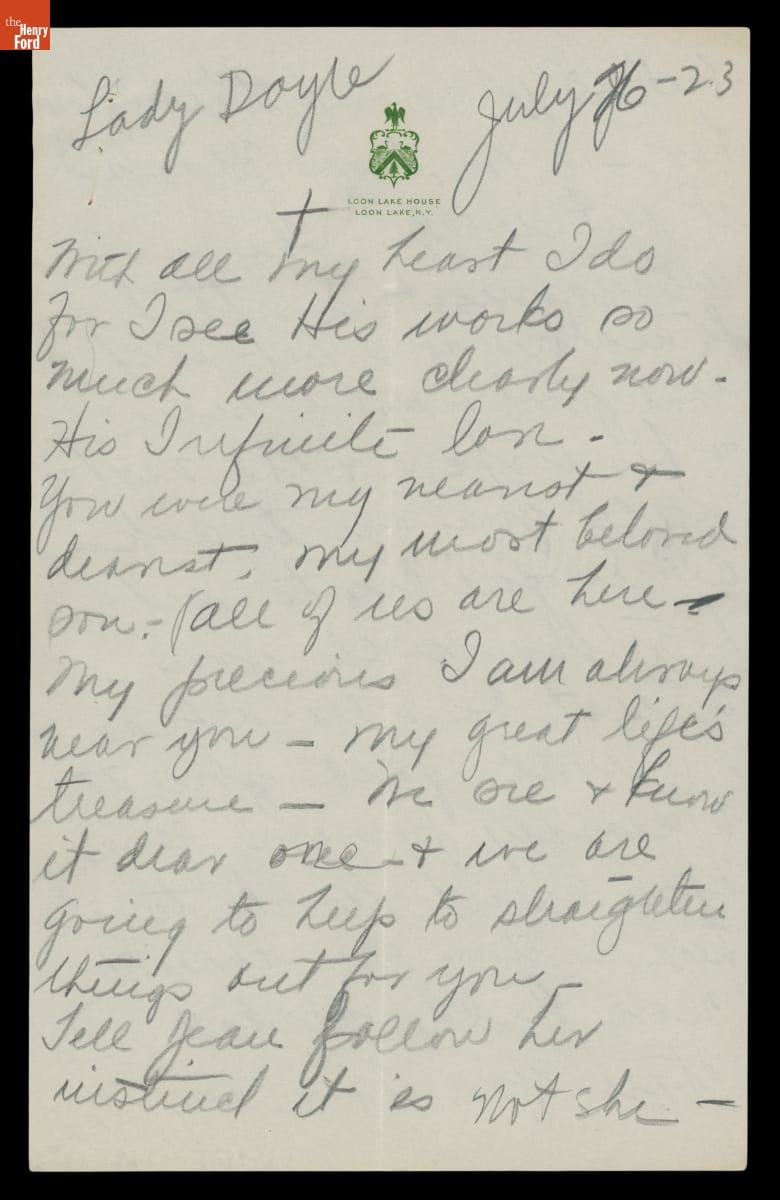 the
Henry
Ford
Lady Doyle
July 26-23
LOON LAKE HOUSE
LOON LAKE, N.Y.
With all my heart I do
for I see His works so
much more clearly now.
His Infinite love.
You were my nearest &
dearest, my most beloved
son. - (all of us are here -
My precious I am always
near you - my great life's
treasure - We see & know
it dear one - & we are
going to help to straighten
things out for you -
Tell Jean follow her
instinct it is not she -